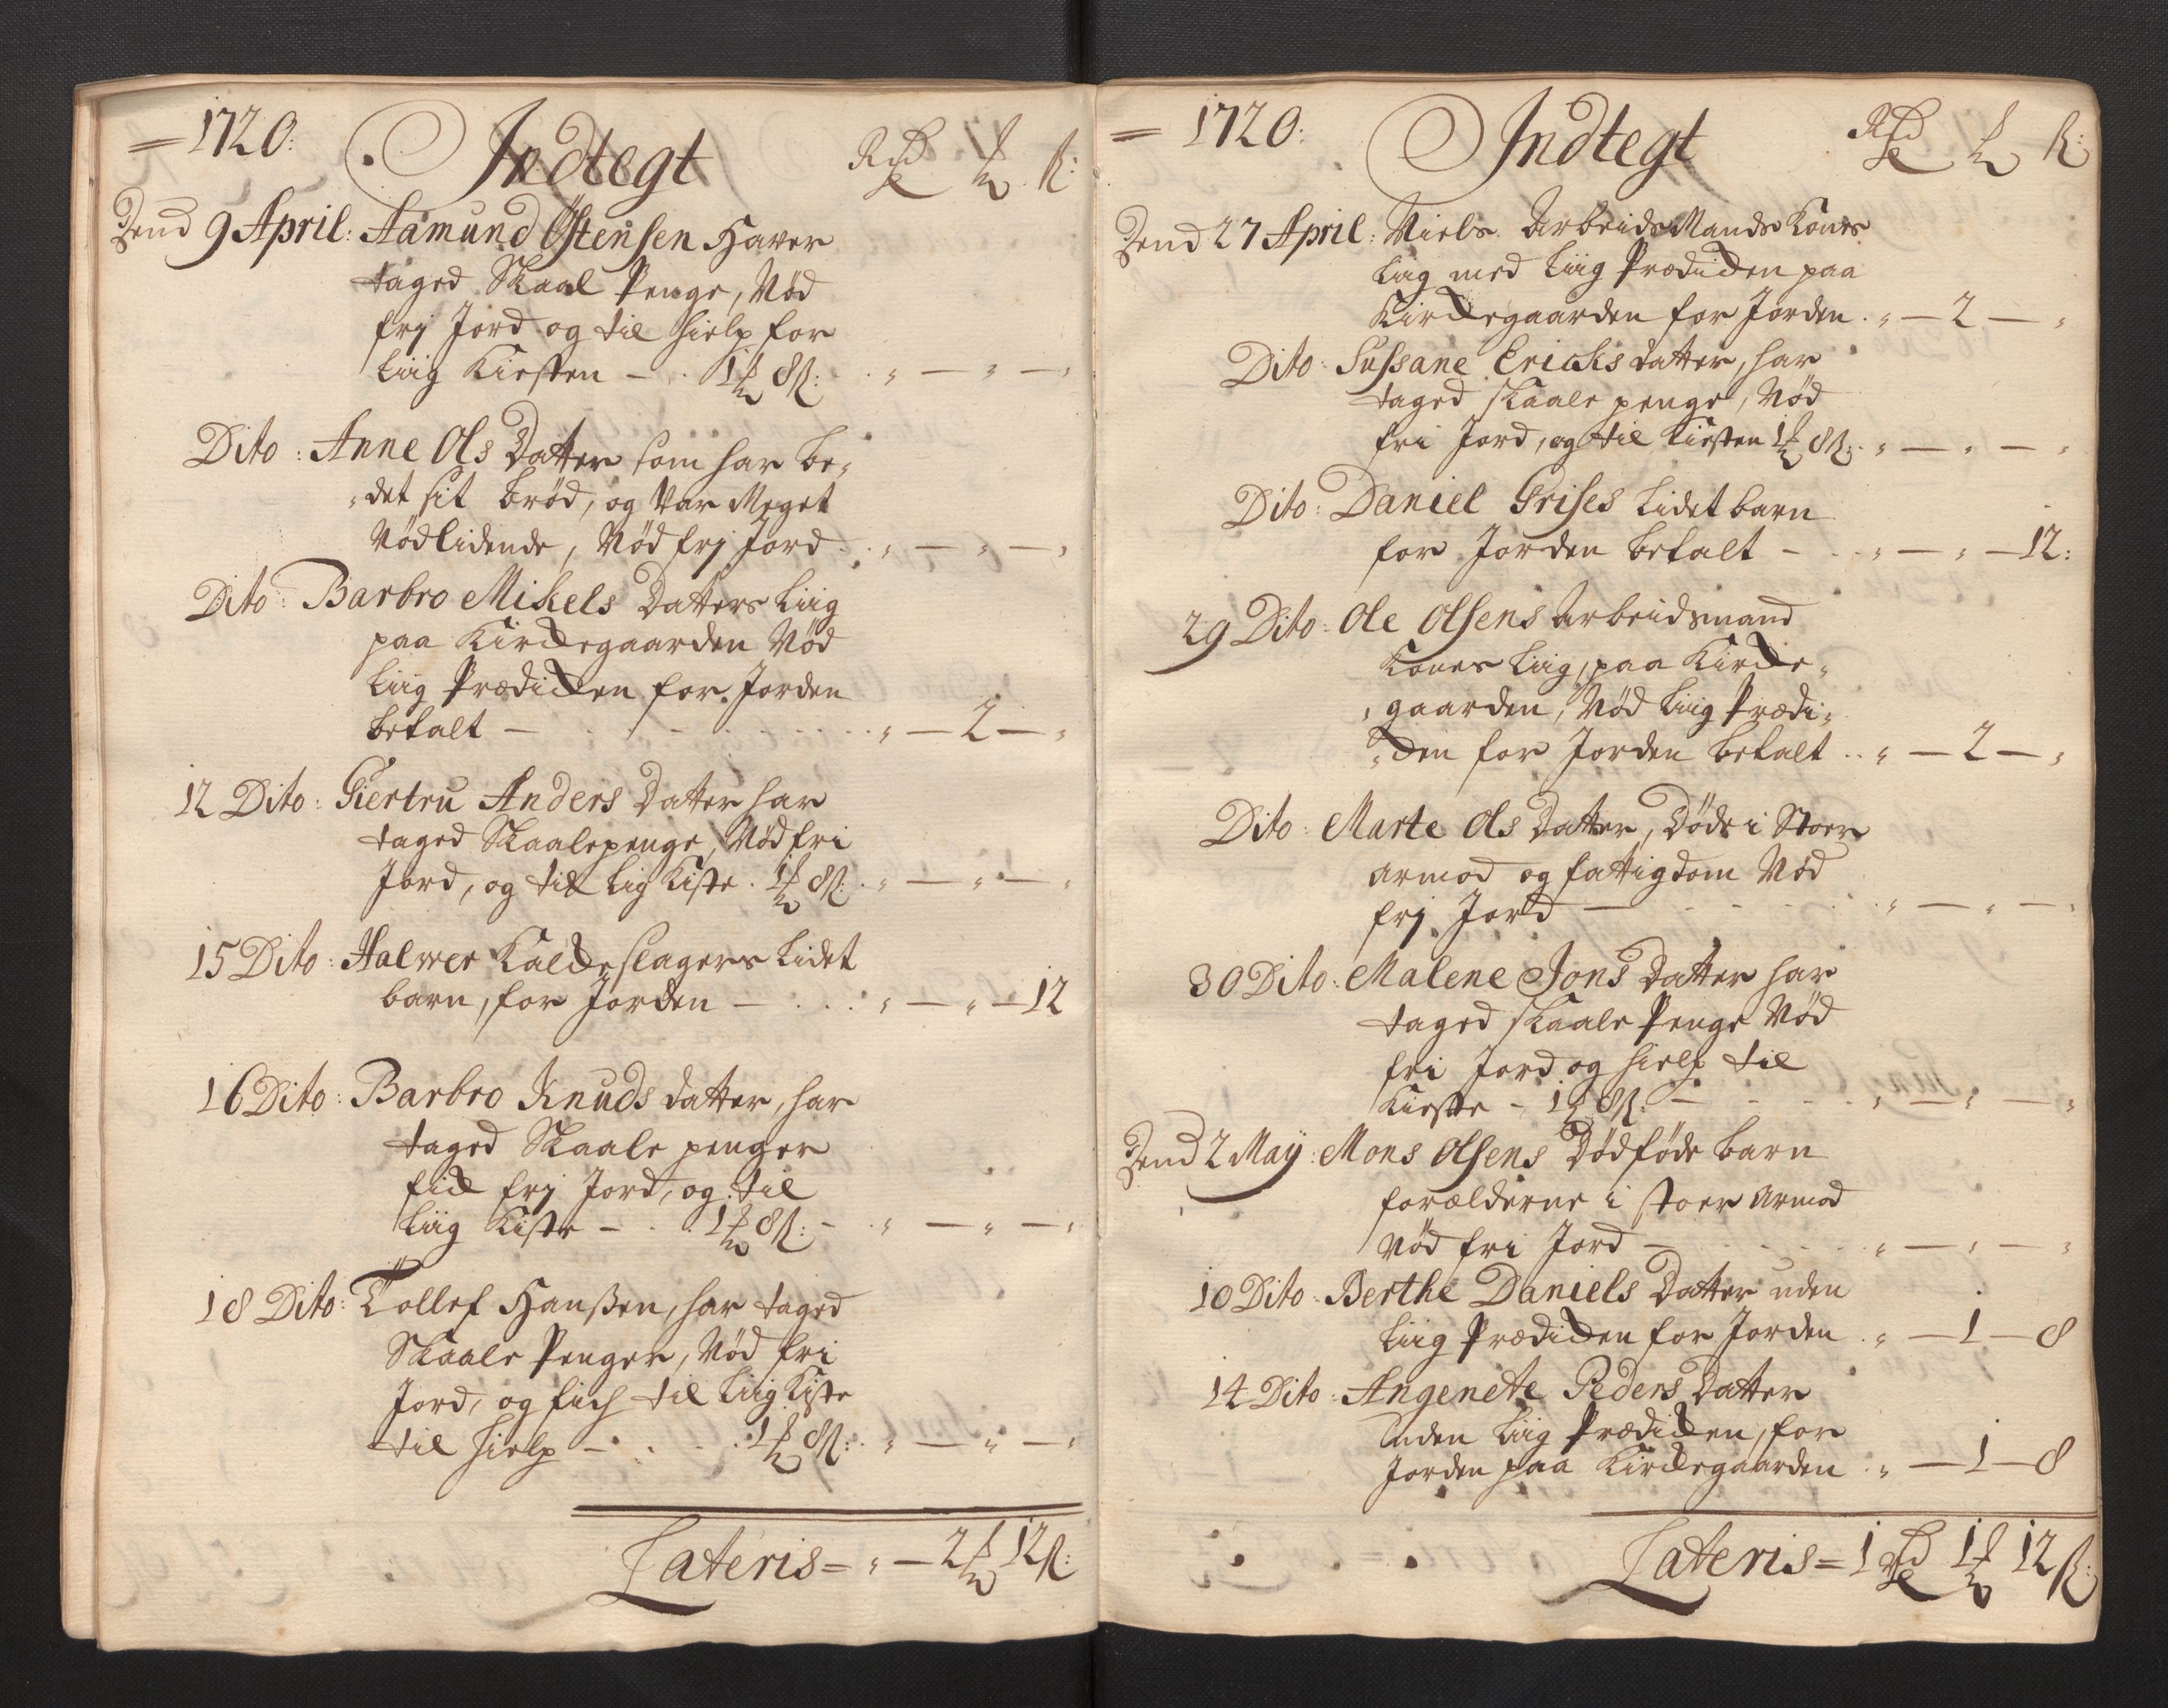 1720: Indtegt Rdr ℔ ß:
Dend 9 April: Aamund Östensen Haver
taged Skaal Penge, Nød
frj Jord og til hielp for
Liig Kiesten – 1 ℔ 8 ß: „ — „ — „
Dito: Anne Ols Datter som har be-
-det sit brød, og Var Meget
Nødlidende, Nød frj Jord „ — „ — „
Dito: Barbro Mikels Datters Liig
paa Kirckegaarden Nød
Liig Prædicken for Jorden
betalt — „ — 2 — „
12 Dito: Giertru Anders Datter har
taged Skaalepenge, Nød fri
Jord, og til Lig Kiste. 1 ℔ 8 ß: „ — „ — „
15 Dito: Halwer Kaldeslagers Lidet
barn, for Jorden — „ — „ — 12
16 Dito: Barbro Knuds datter, har
taged Skaale penger
fick frj Jord, og til
Liig Kiste – 1 ℔ 8 ß: – „ — „ — „
18 Dito: Tollef Hanßen, har taged
Skaale Penger, Nød fri
Jord, og fich til Liig Kiste
til hielp – 1 ℔ 8 ß: „ — „ — „
Lateris = „ — 2 ℔ 12 ß:
1720: Indtegt Rdr ℔ ß:
Dend 27 April: Niels Arbeids Mands Kones
Liig med Liig Prædicken paa
Kirckegaarden for Jorden. „ — 2 — „
Dito: Sussane Ericks datter, har
taged skaale penge, Nød
fri Jord, og til Kiesten 1 ℔ 8 ß: „ — „ — „
Dito: Daniel Grises Lidet barn
for Jorden betalt – „ — „ — 12:
29 Dito: Ole Olsens Arbeidsmand
Kones Liig, paa Kircke-
-gaarden, Nød Liig Prædi-
-cken for Jorden betalt „ — 2 — „
Dito: Marte Ols Datter, Døde i Stoer
armod og fattigdom Nød
frj Jord — „ — „ — „
30 Dito: Malene Jons Datter har
taged skaale Penge Nød
fri Jord og hielp til
Kieste – 1 ℔ 8 ß: – „ — „ — „
Dend 2 Maÿ: Mons Olsens Dødføde barn
forælderne i stoer armod
Nød fri Jord – „ — „ — „
10 Dito: Berthe Daniels Datter uden
Liig Prædicken for Jorden. „ — 1 — 8
14 Dito: Angenete Peders Datter
uden Liig Prædicken, for
Jorden paa Kirckegaarden „ — 1 — 8
Lateris = 1 Rdr 1 ℔ 12 ß: